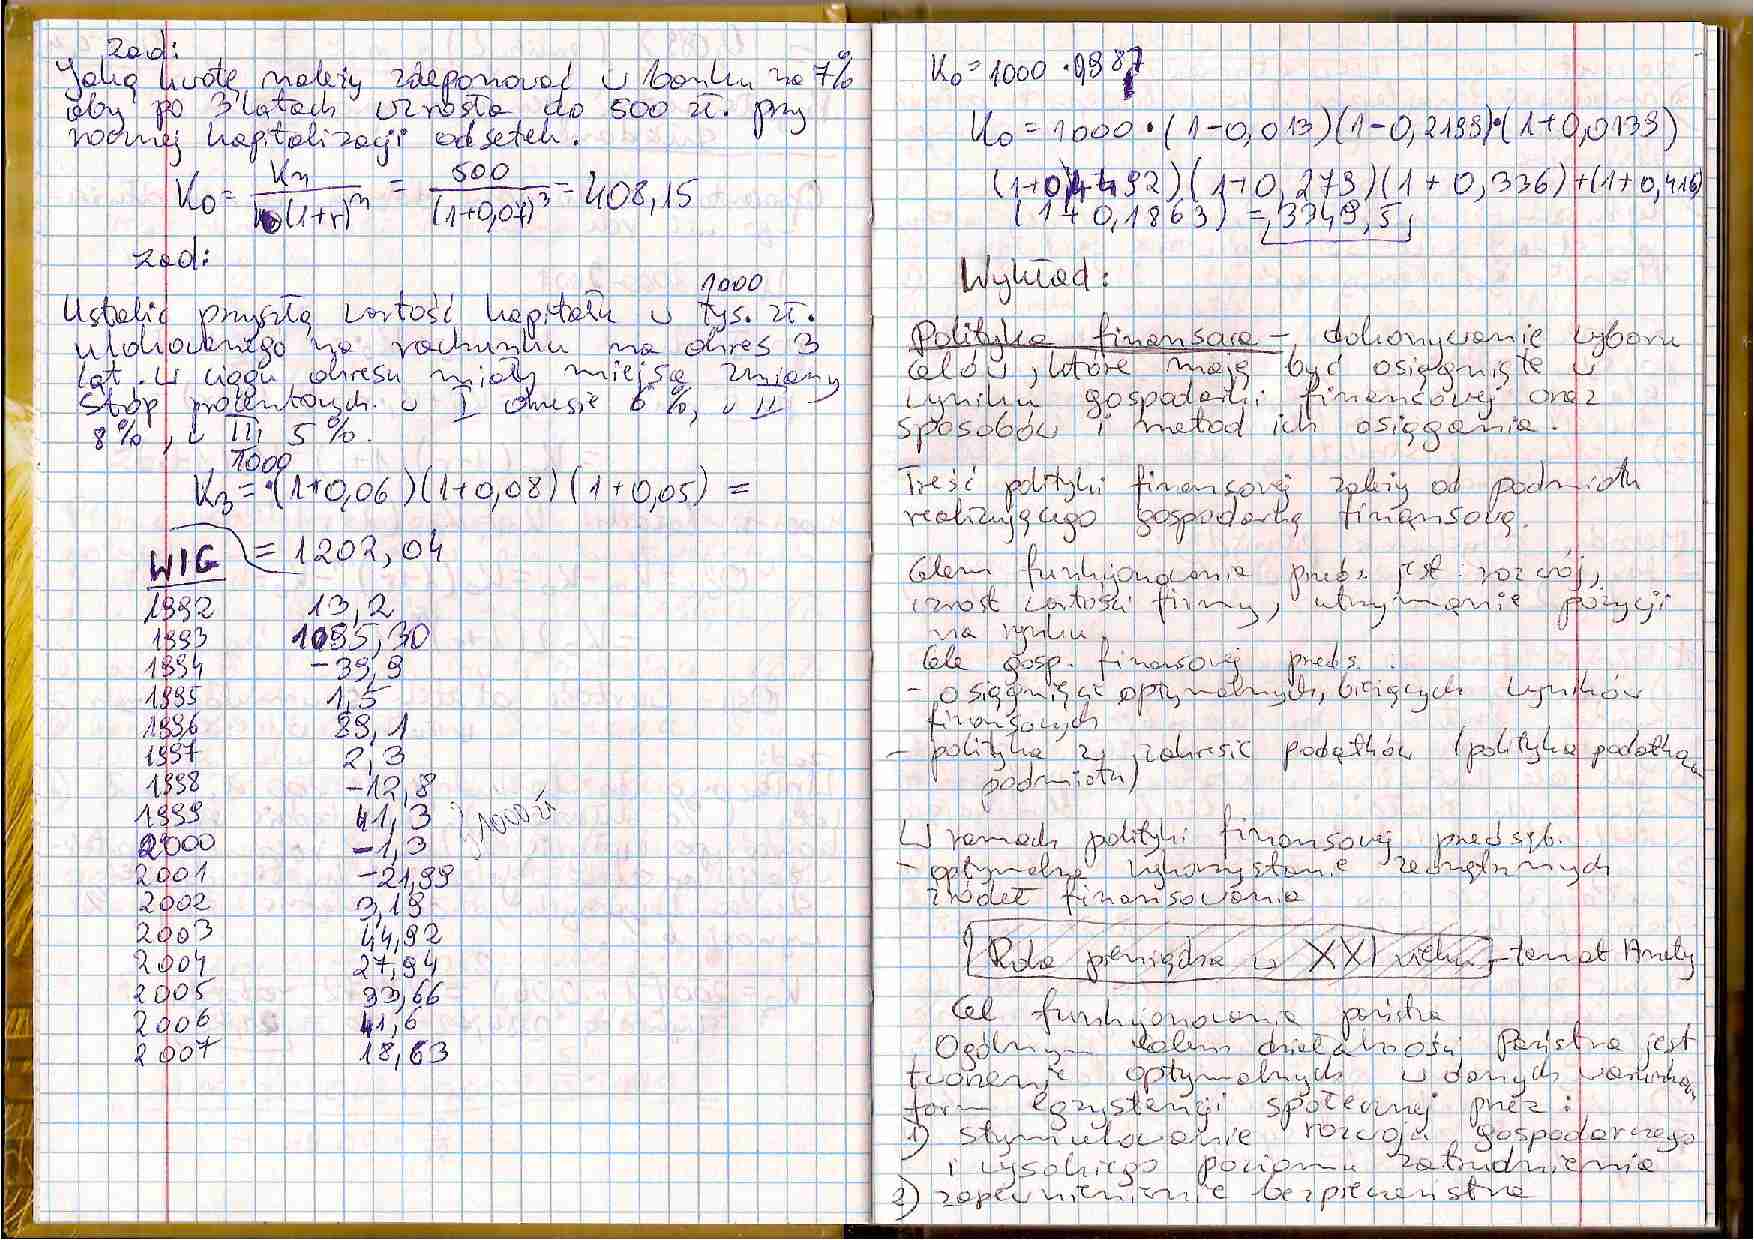 zad:
Jaką kwotę należy zdeponować w banku na 7%
aby po 3 latach wzrosła do 500 zł. przy
rocznej kapitalizacji odsetek.
K0 = Kn / (1+r)^n = 500 / (1+0,07)^3 = 408,15
zad:
1000
Ustalić przyszłą wartość kapitału w tys. zł.
ulokowanego na rachunku na okres 3
lat. W ciągu okresu miały miejsce zmiany
stóp procentowych. w I okresie 6%, w II
8%, w III 5%.
1000
K3 = ·(1+0,06)(1+0,08)(1+0,05) =
= 1202,04
WIG
1992 13,2
1993 1095,30
1994 -39,9
1995 1,5
1996 89,1
1997 2,3
1998 -12,8
1999 41,3
1000 zł
2000 -1,3
2001 -21,99
2002 3,19
2003 44,92
2004 27,94
2005 33,66
2006 41,6
2007 18,63
K0 = 1000 · 0,987
K0 = 1000 · (1-0,013)(1-0,2199)·(1+0,0139)
(1+0,4492)(1+0,279)(1+0,336)+(1+0,416)
(1+0,1863) = 3349,5
Wykład:
Polityka finansowa - dokonywanie wyboru
celów, które mają być osiągnięte w
wyniku gospodarki finansowej oraz
sposobów i metod ich osiągania.
Treść polityki finansowej zależy od podmiotu
realizującego gospodarkę finansową.
Celem funkcjonowania przeds. jest rozwój,
wzrost wartości firmy, utrzymanie pozycji
na rynku.
Cele gosp. finansowej przeds.
- osiągnięcie optymalnych, bieżących wyników
finansowych
- polityka w zakresie podatków (polityka podatkowa
podmiotu)
W ramach polityki finansowej przedsięb.
- optymalne wykorzystanie zewnętrznych
źródeł finansowania
Rola pieniądza w XXI wieku - temat Anety
Cel funkcjonowania państwa
Ogólnym celem działalności Państwa jest
tworzenie optymalnych w danych warunkach
form egzystencji społecznej przez:
1) stymulowanie rozwoju gospodarczego
i wysokiego poziomu zatrudnienia
2) zapewnienie bezpieczeństwa